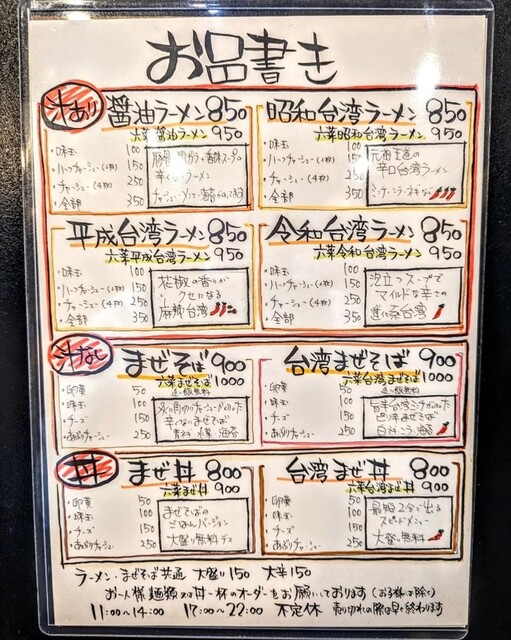 お品書き
汁あり
醤油ラーメン 850
六菜醤油ラーメン 950
・味玉 100
・ハーフチャーシュー(2枚) 150
・チャーシュー(4枚) 250
・全部 350
辛くないラーメン
昭和台湾ラーメン 850
六菜昭和台湾ラーメン 950
・味玉 100
・ハーフチャーシュー(2枚) 150
・チャーシュー(4枚) 250
・全部 350
元祖王道の
辛口台湾ラーメン
ミンチ・ニラ・ネギなど
平成台湾ラーメン 850
六菜平成台湾ラーメン 950
・味玉 100
・ハーフチャーシュー(2枚) 150
・チャーシュー(4枚) 250
・全部 350
花椒の香りが
クセになる
麻辣台湾
令和台湾ラーメン 850
六菜令和台湾ラーメン 950
・味玉 100
・ハーフチャーシュー(2枚) 150
・チャーシュー(4枚) 250
・全部 350
泡立つスープで
マイルドな辛さの
進化系台湾
汁なし
まぜそば 900
六菜まぜそば 1000
追い飯無料
・卵黄 50
・味玉 100
・チーズ 150
・あぶりチャーシュー 250
辛くないまぜそば
台湾まぜそば 900
六菜台湾まぜそば 1000
追い飯無料
・卵黄 50
・味玉 100
・チーズ 150
・あぶりチャーシュー 250
旨辛台湾ミンチがのった
ピリ辛まぜそば
丼
まぜ丼 800
六菜まぜ丼 900
・卵黄 50
・味玉 100
・チーズ 150
・あぶりチャーシュー 250
まぜそばの
ごはんバージョン
大盛り無料デス
台湾まぜ丼 800
六菜台湾まぜ丼 900
・卵黄 50
・味玉 100
・チーズ 150
・あぶりチャーシュー 250
最短2分で出る
スピードメニュー
大盛り無料
ラーメン・まぜそば共通 大盛り150 大辛150
お一人様麺類又は丼一杯のオーダーをお願いしております(お子様は除く)
11:00〜14:00 17:00〜22:00 不定休 売り切れの際は早く終わります